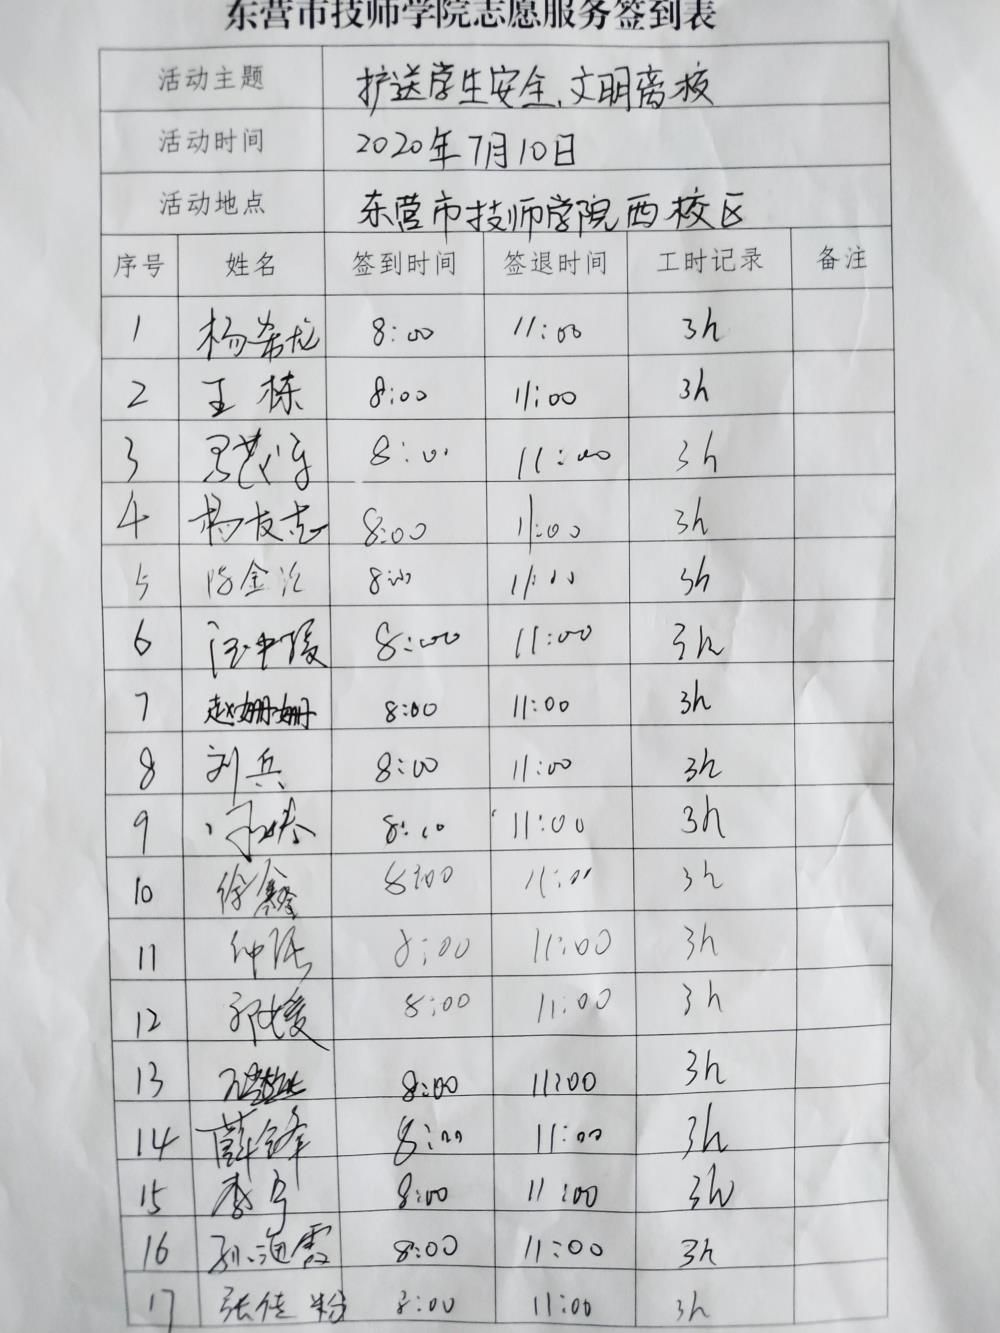 东营市技师学院志愿服务签到表
活动主题 护送学生安全、文明离校
活动时间 2020年7月10日
活动地点 东营市技师学院西校区
序号 姓名 签到时间 签退时间 工时记录 备注
1 杨希龙 8:00 11:00 3h
2 王栋 8:00 11:00 3h
3 8:00 11:00 3h
4 杨友志 8:00 11:00 3h
5 陈金 8:00 11:00 3h
6 8:00 11:00 3h
7 赵姗姗 8:00 11:00 3h
8 刘兵 8:00 11:00 3h
9 8:00 11:00 3h
10 徐鑫 8:00 11:00 3h
11 8:00 11:00 3h
12 郭媛 8:00 11:00 3h
13 8:00 11:00 3h
14 薛锋 8:00 11:00 3h
15 李宁 8:00 11:00 3h
16 孙海霞 8:00 11:00 3h
17 张佳粉 8:00 11:00 3h